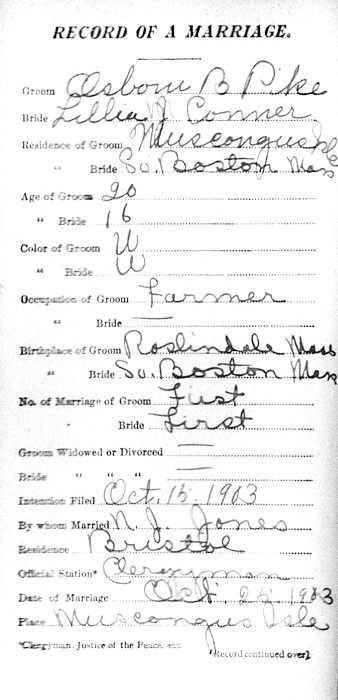 RECORD OF A MARRIAGE.
Groom Osborn B Pike
Bride Lillia J Conner
Residence of Groom Muscongus Isle
" Bride So. Boston Mass
Age of Groom 20
" Bride 16
Color of Groom W
" Bride W
Occupation of Groom Farmer
" Bride —
Birthplace of Groom Roslindale Mass
" Bride So. Boston Mass
No. of Marriage of Groom First
" Bride First
Groom Widowed or Divorced —
Bride " " " —
Intention Filed Oct. 15. 1903
By whom Married N. J. Jones
Residence Bristol
Official Station* Clergyman
Date of Marriage Oct. 25. 1903
Place Muscongus Isle
*Clergyman, Justice of the Peace, etc.
(Record continued over)